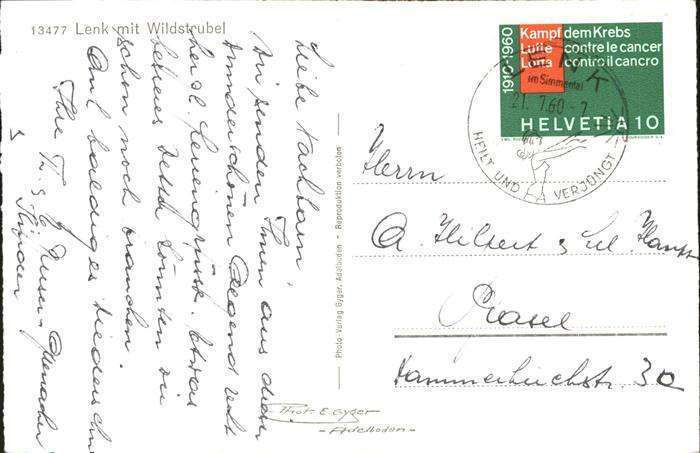 13477 Lenk mit Wildstrubel
Liebe Nachbarn
Wir senden Ihnen aus dieser
wunderschönen Gegend recht
herzl. Feriengrüsse. Etwas
besseres Wetter könnten wir
schon noch brauchen.
Auf baldiges Wiedersehn
Ihre Th. &
Photo-Verlag Gyger, Adelboden - Reproduktion verboten
Phot. E. Gyger
- Adelboden -
1910-1960
Kampf dem Krebs
Lutte contre le cancer
Lotta contro il cancro
HELVETIA 10
LENK
im Simmental
21. 7.60 - 7
HEILT UND VERJÜNGT
Herrn
A. Hilbert &
Basel
Hammerstrasse 30